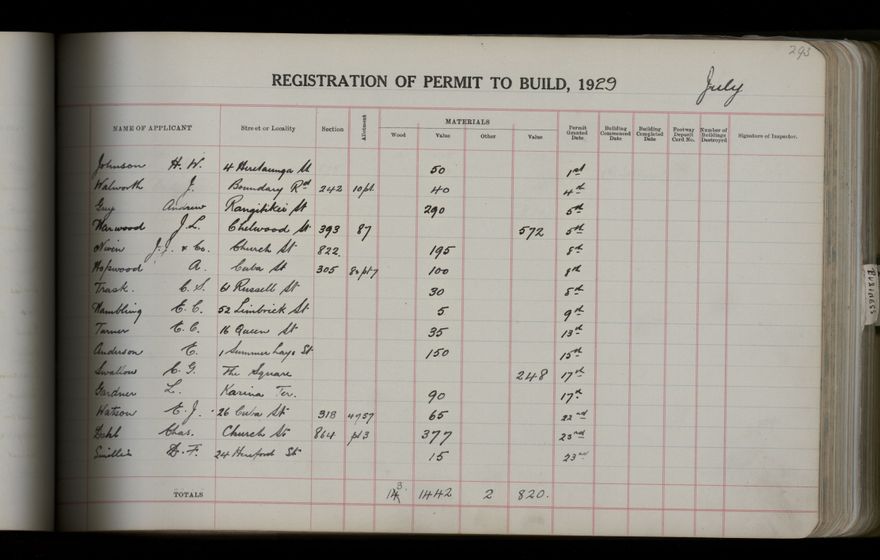 293
REGISTRATION OF PERMIT TO BUILD, 1929 July
NAME OF APPLICANT Street or Locality Section Allotment MATERIALS Wood Value Other Value Permit Granted Date Building Commenced Date Building Completed Date Footway Deposit Card No. Number of Buildings Destroyed Signature of Inspector.
Johnson H. W. 4 Heretaunga St 50 1st
Walworth J. Boundary Rd 242 10pt 40 4th
Guy Andrew Rangitikei St 290 5th
Harwood J. L. Chelwood St 393 87 572 5th
Niven J. J. & Co. Church St 822 195 8th
Hopwood A. Cuba St 305 80pt7 100 8th
Trask. C. S. 61 Russell St 30 8th
Hambling C. C. 52 Limbrick St 5 9th
Turner C. C. 16 Queen St 35 13th
Anderson C. 1 Summerhays St 150 15th
Swallow C. G. The Square 248 17th
Gardner L. Karina Ter. 90 17th
Watson C. J. 26 Cuba St 318 65 22nd
Dahl Chas. Church St 864 pt3 377 23rd
24 Hereford St 15 23rd
TOTALS 13 1442 2 820.